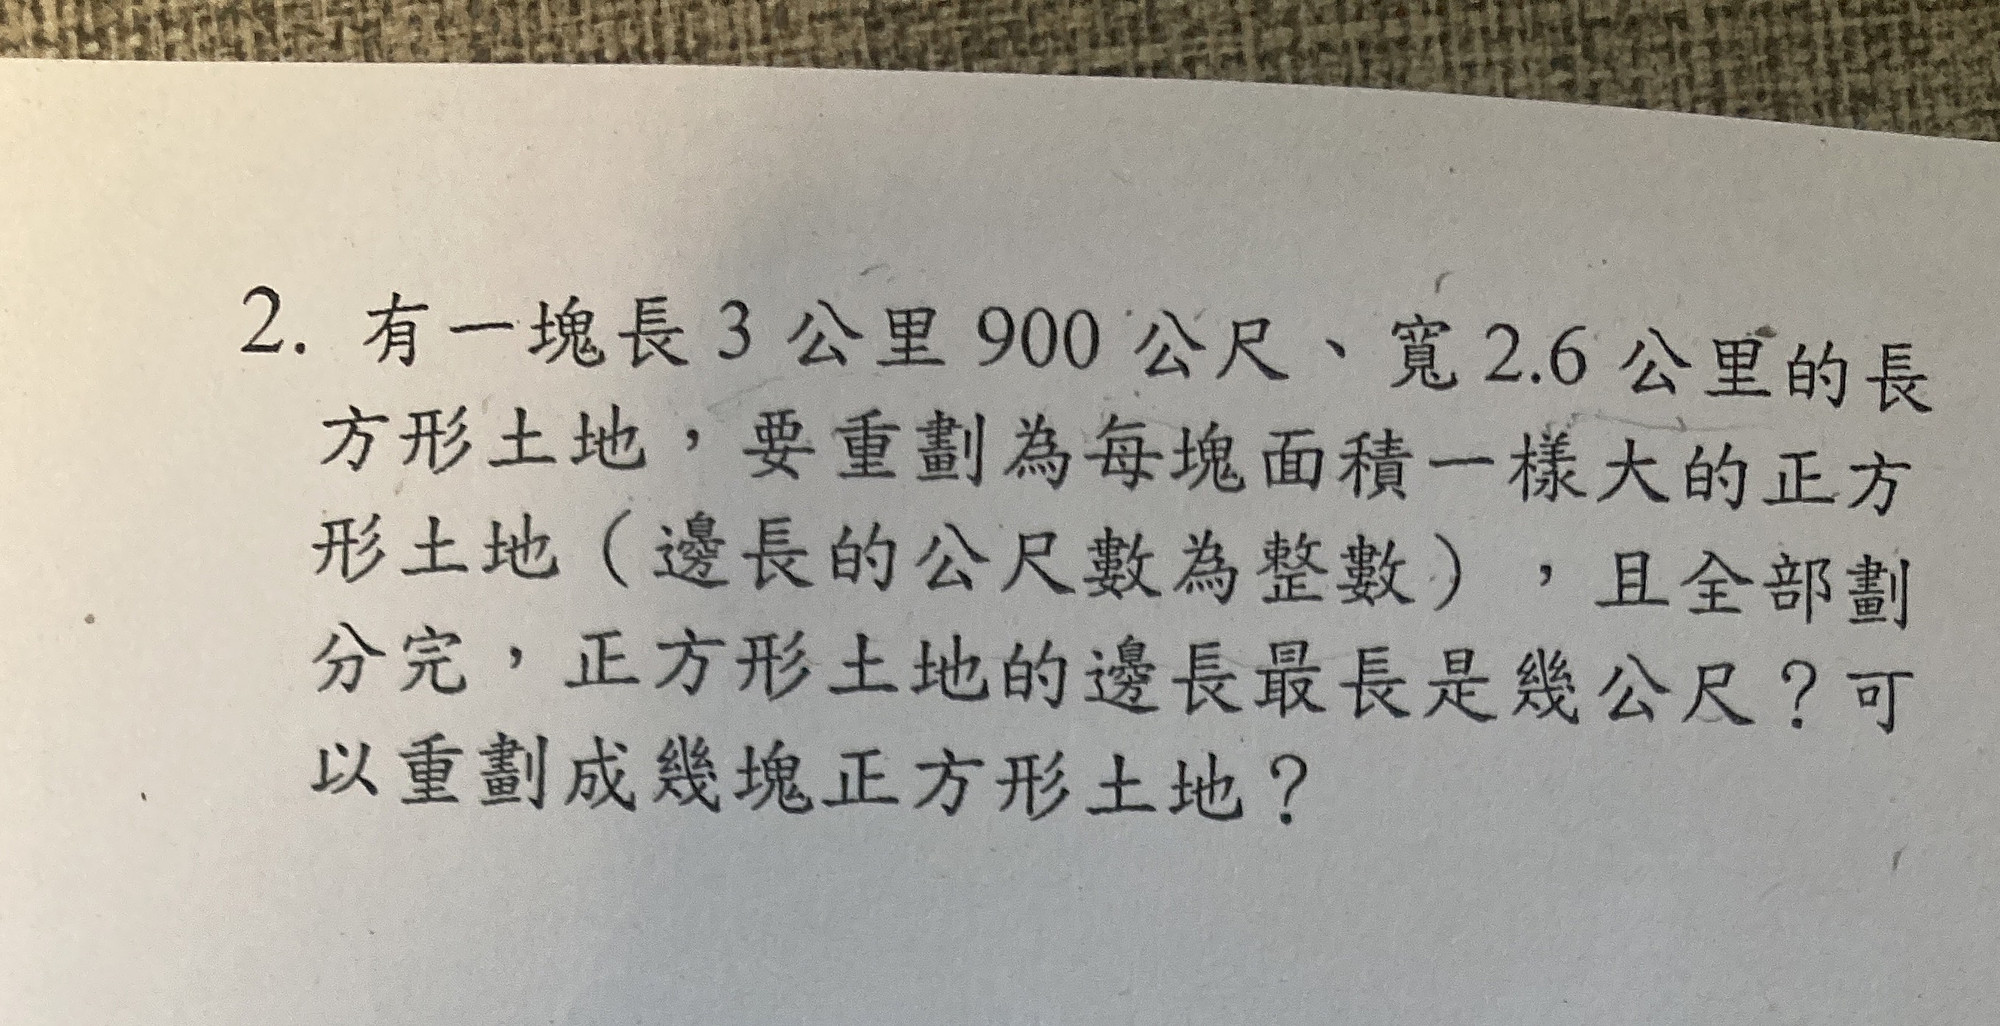 2. 有一塊長 3 公里 900 公尺、寬 2.6 公里的長
方形土地，要重劃為每塊面積一樣大的正方
形土地（邊長的公尺數為整數），且全部劃
分完，正方形土地的邊長最長是幾公尺？可
以重劃成幾塊正方形土地？